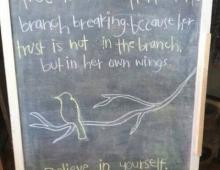 branch breaking because her
trust is not in the branch,
but in her own wings.
Believe in yourself.